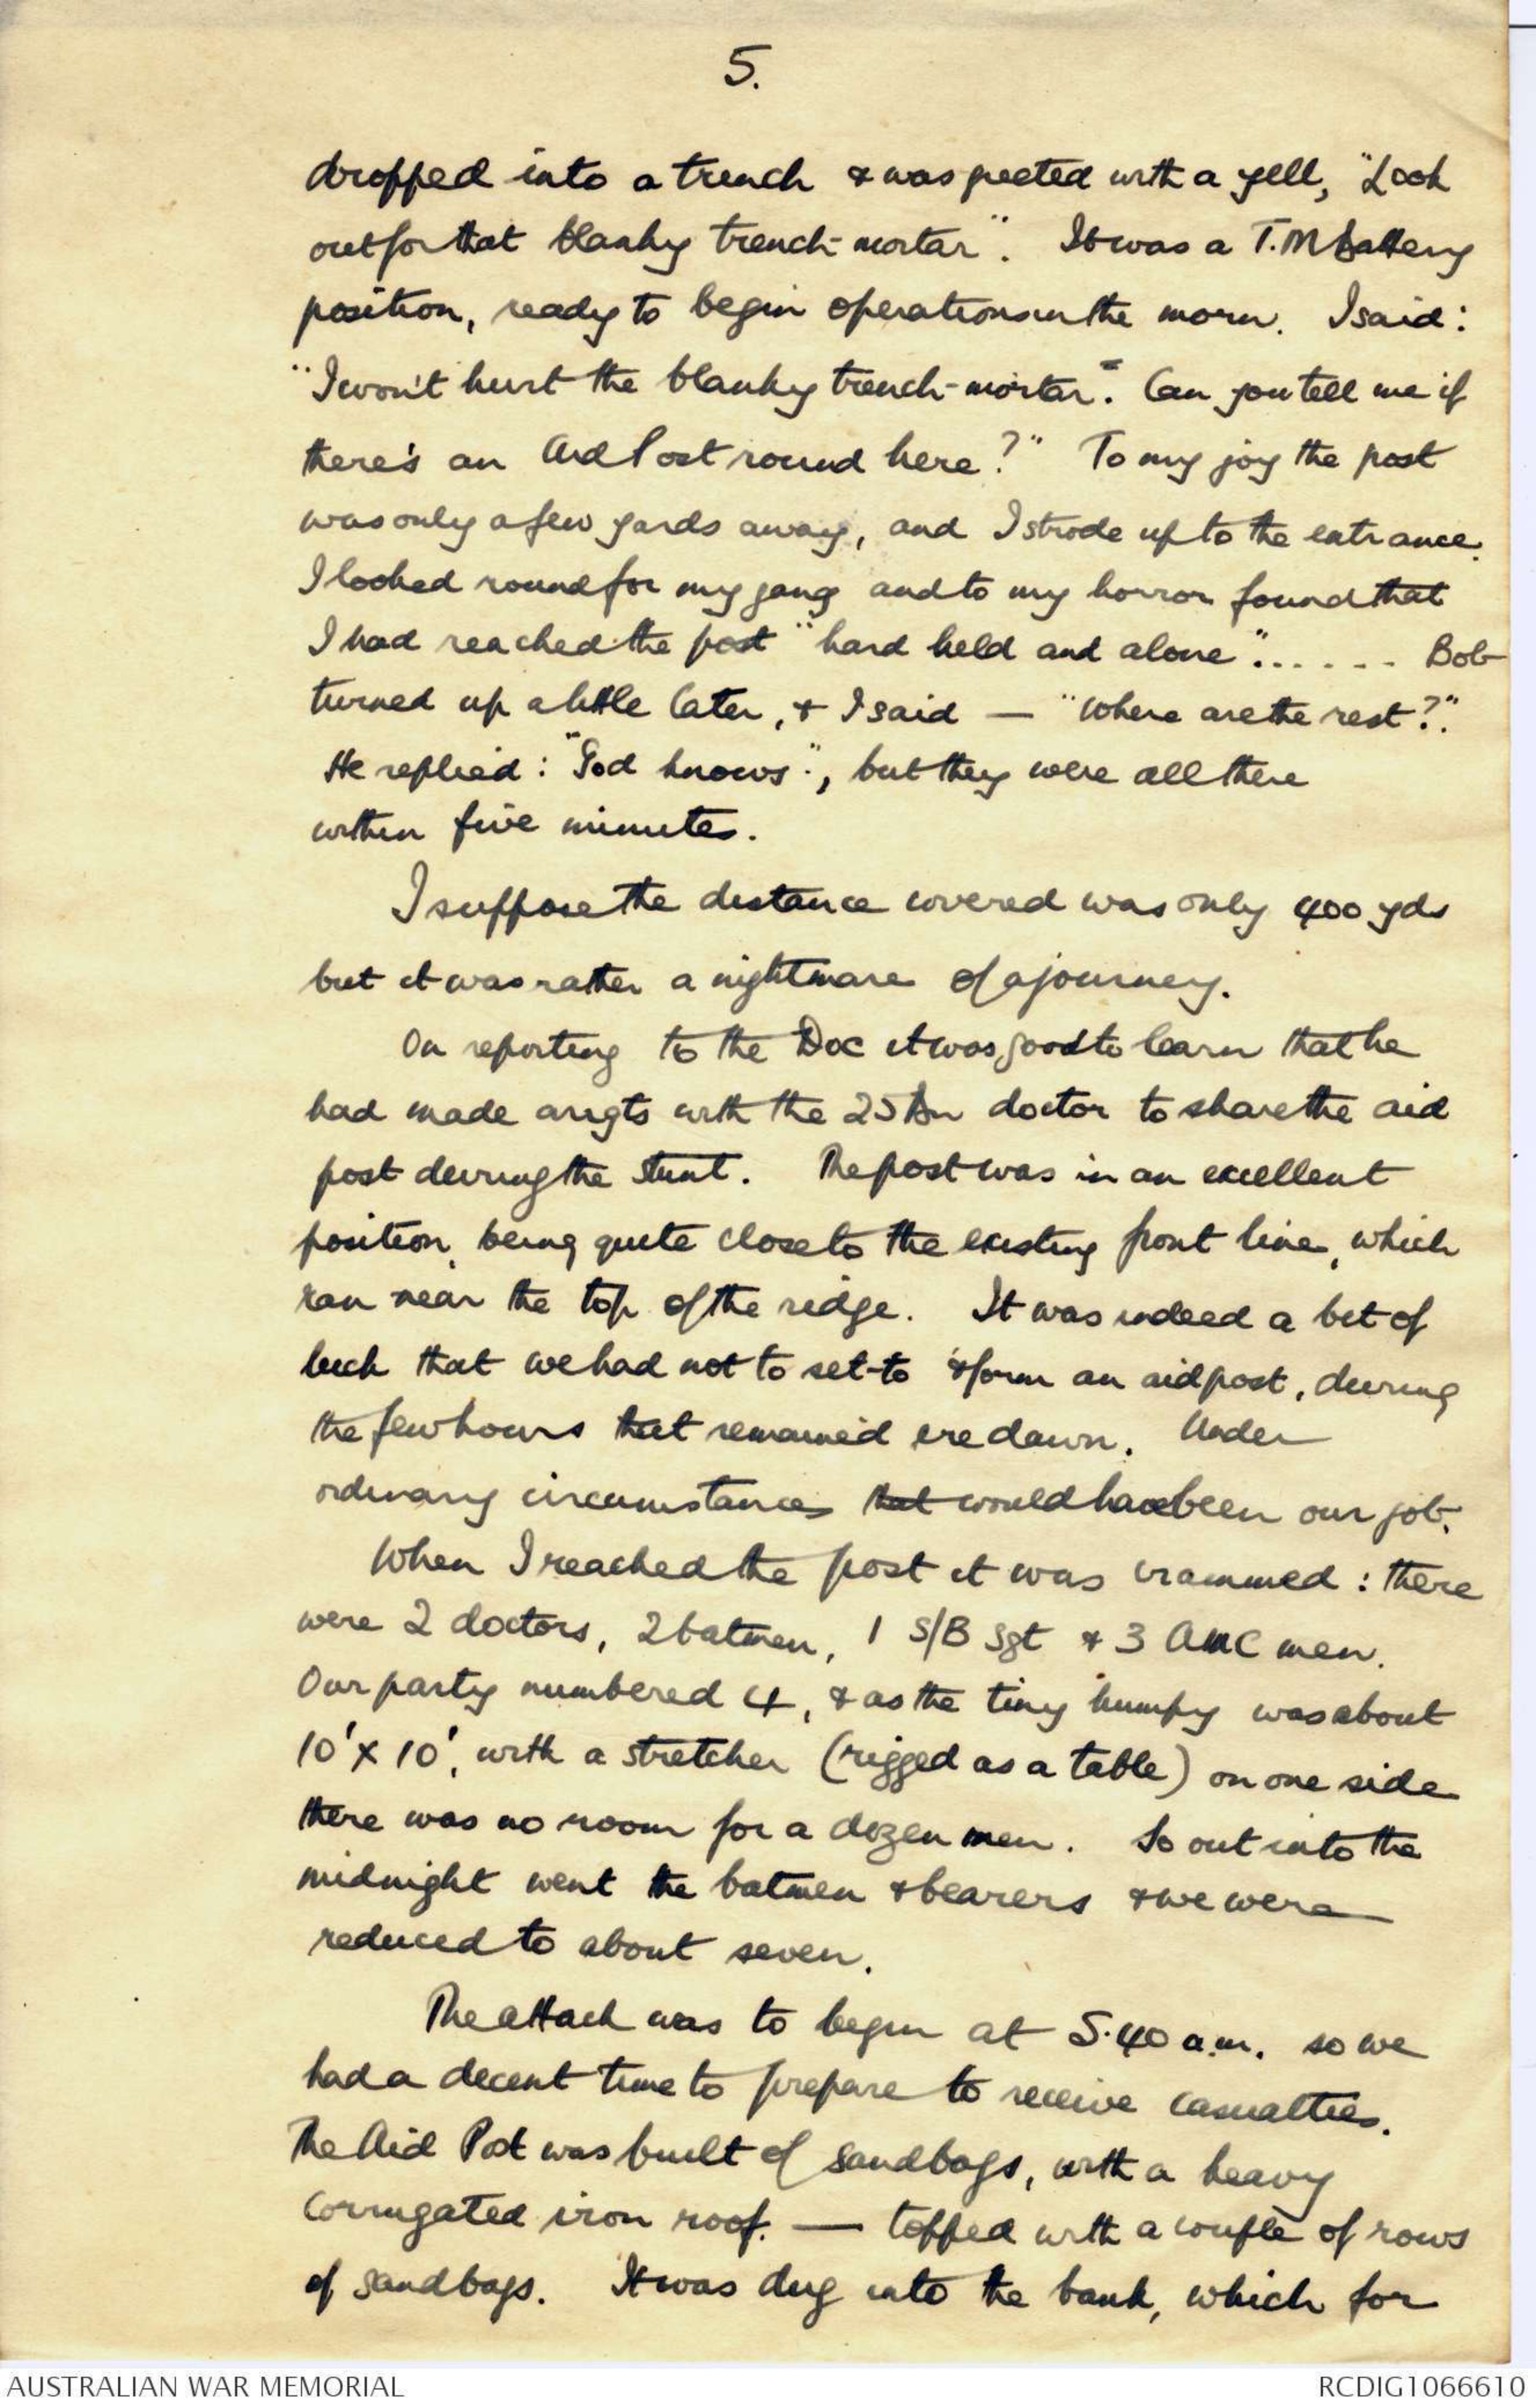 5.
dropped into a trench & was greeted with a yell, "Look
out for that blanky trench-mortar". It was a T.M battery
position, ready to begin operations in the morn. I said:
"I won't hurt the blanky trench-mortar". Can you tell me if
there's an Aid Post round here?" To my joy the post
was only a few yards away, and I strode up to the entrance.
I looked round for my gang and to my horror found that
I had reached the post "hard held and alone"...... Bob
turned up a little later, & I said — "Where are the rest?".
He replied: "God knows", but they were all there
within five minutes.
I suppose the distance covered was only 400 yds
but it was rather a nightmare of a journey.
On reporting to the Doc it was good to learn that he
had made arrgts with the 25 Bn doctor to share the aid
post during the stunt. The post was in an excellent
position, being quite close to the existing front line, which
ran near the top of the ridge. It was indeed a bit of
luck that we had not to set-to & form an aid post, during
the few hours that remained ere dawn. Under
ordinary circumstances that would have been our job.
When I reached the post it was crammed: there
were 2 doctors, 2 batmen, 1 S/B Sgt & 3 AMC men.
Our party numbered 4, & as the tiny humpy was about
10' x 10', with a stretcher (rigged as a table) on one side
there was no room for a dozen men. So out into the
midnight went the batmen & bearers & we were
reduced to about seven.
The attack was to begin at 5.40 a.m. so we
had a decent time to prepare to receive casualties.
The Aid Post was built of sandbags, with a heavy
corrugated iron roof. — topped with a couple of rows
of sandbags. It was dug into the bank, which for
AUSTRALIAN WAR MEMORIAL
RCDIG1066610